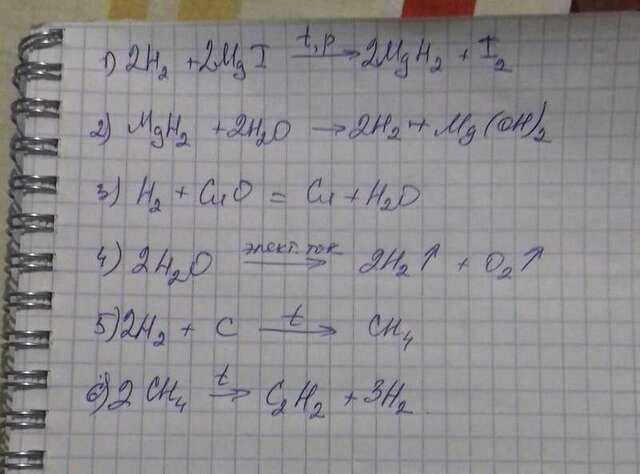 1) 2H₂ + 2MgI t,p → 2MgH₂ + I₂
2) MgH₂ + 2H₂O → 2H₂ + Mg(OH)₂
3) H₂ + CuO = Cu + H₂O
4) 2H₂O элект. ток → 2H₂↑ + O₂↑
5) 2H₂ + C t → CH₄
6) 2CH₄ t → C₂H₂ + 3H₂